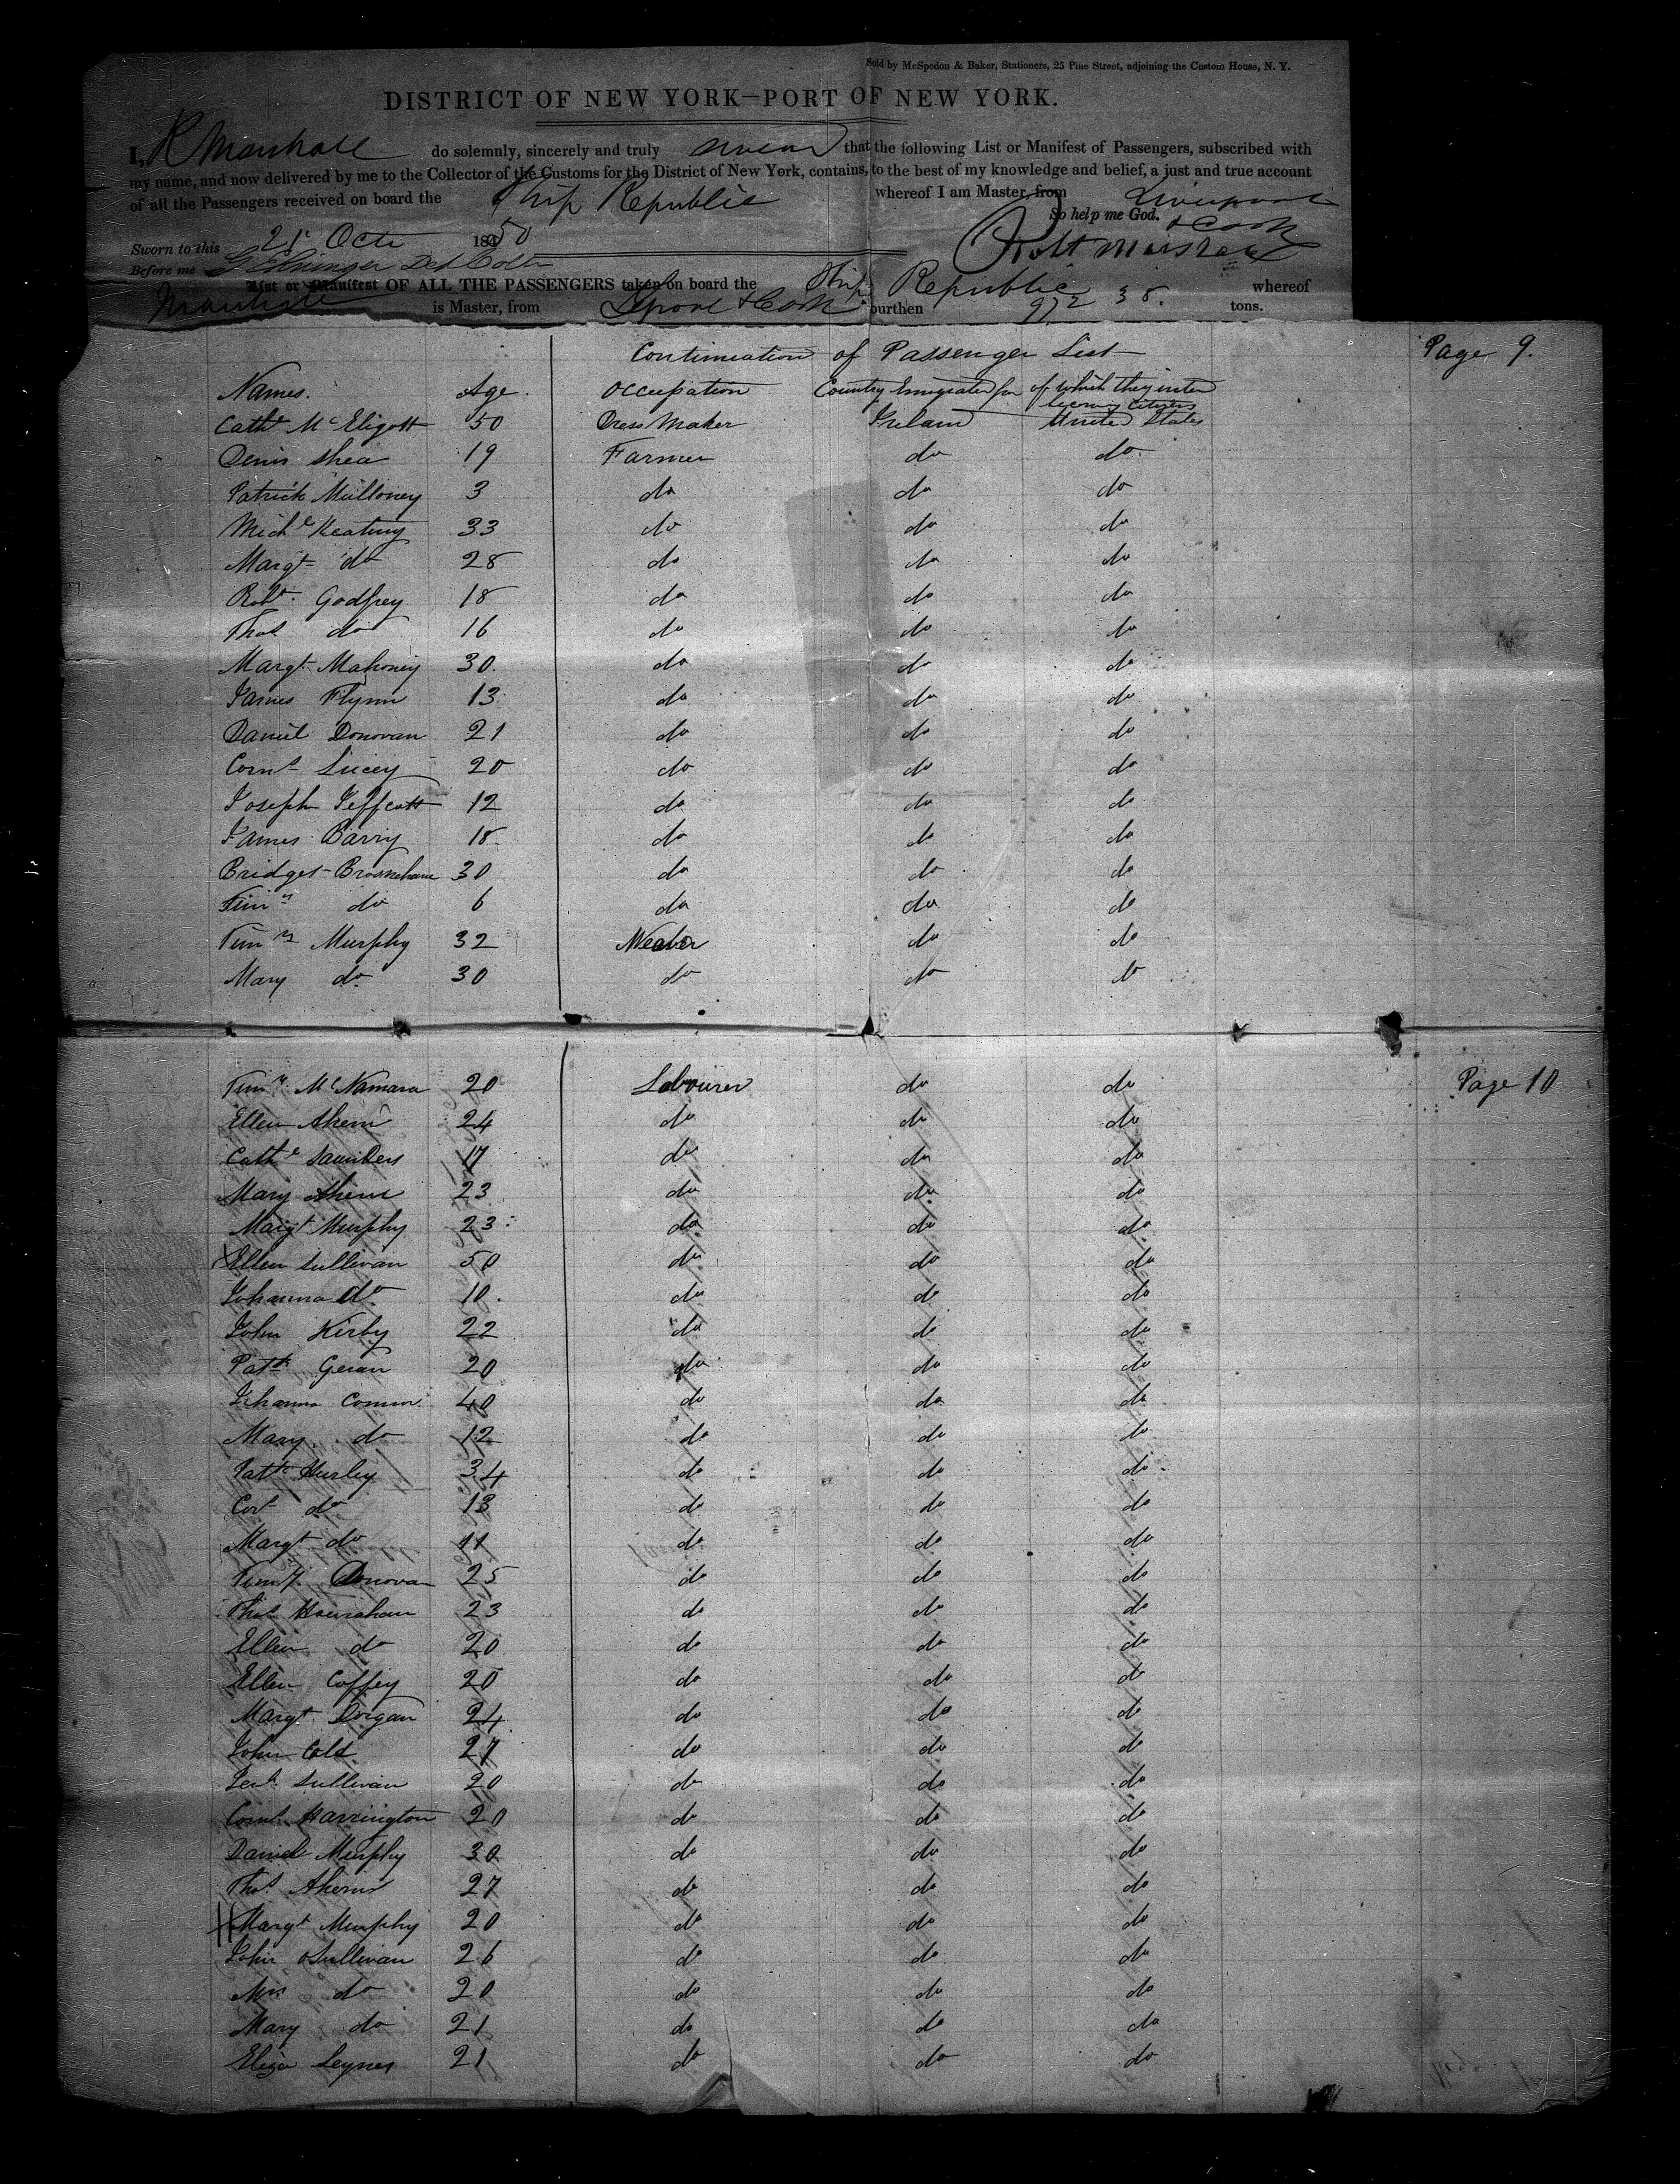 Sold by McSpedon & Baker, Stationers, 25 Pine Street, adjoining the Custom House, N. Y.
DISTRICT OF NEW YORK—PORT OF NEW YORK.
I, R Marshall do solemnly, sincerely and truly swear that the following List or Manifest of Passengers, subscribed with
my name, and now delivered by me to the Collector of the Customs for the District of New York, contains, to the best of my knowledge and belief, a just and true account
of all the Passengers received on board the Ship Republic whereof I am Master, from Liverpool
& Cork
So help me God.
Sworn to this 21 Octr 1850 Robt Marshall
Before me Dep Coltr
List or Manifest OF ALL THE PASSENGERS taken on board the Ship Republic whereof
Marshall is Master, from Lpool & Cork burthen 972 38. tons.
Continuation of Passenger List Page 9.
Names. Age. Occupation Country Emigrated from of which they inten
becoming Citizens
Cathe McEligott 50 Dress Maker Ireland United States
Denis Shea 19 Farmer do do
Patrick Mulloney 3 do do do
Michl Keating 33 do do do
Margt do 28 do do do
Robt. Godfrey 18 do do do
Thos do 16 do do do
Margt Mahoney 30 do do do
James Flynn 13 do do do
Daniel Donovan 21 do do do
Corns Lucey 20 do do do
Joseph Jeffcott 12 do do do
James Barry 18 do do do
Bridget Brosnehane 30 do do do
Timy do 6 do do do
Timy Murphy 32 Weaver do do
Mary do 30 do do do
Timy McNamara 20 Labourer do do Page 10
Ellen Ahern 24 do do do
Cathe Saunders 17 do do do
Mary Ahern 23 do do do
Margt Murphy 23 do do do
X Ellen Sullivan 50 do do do
Johanna do 10. do do do
John Kirby 22 do do do
Patk Geran 20 do do do
Johanna Connor 40 do do do
Mary do 12 do do do
Patk Hurley 34 do do do
Cors do 13 do do do
Margt do 11 do do do
Timy. Donovan 25 do do do
Thos Hourahan 23 do do do
Ellen do 20 do do do
Ellen Coffey 20 do do do
Margt Dorgan 24 do do do
John Cold 27 do do do
Jerh Sullivan 20 do do do
Corns Harrington 20 do do do
Daniel Murphy 30 do do do
Thos Ahern 27 do do do
Margt Murphy 20 do do do
John OSullivan 26 do do do
Mrs do 20 do do do
Mary do 21 do do do
Eliza Leynes 21 do do do